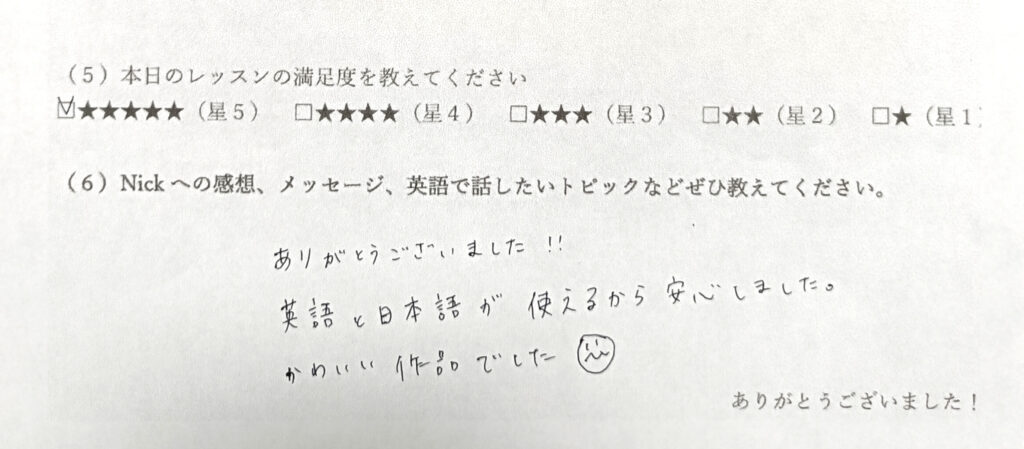 （５）本日のレッスンの満足度を教えてください
☑★★★★★（星５） □★★★★（星４） □★★★（星３） □★★（星２） □★（星１）
（６）Nick への感想、メッセージ、英語で話したいトピックなどぜひ教えてください。
ありがとうございました!!
英語と日本語が使えるから安心しました。
かわいい作品でした
ありがとうございました！